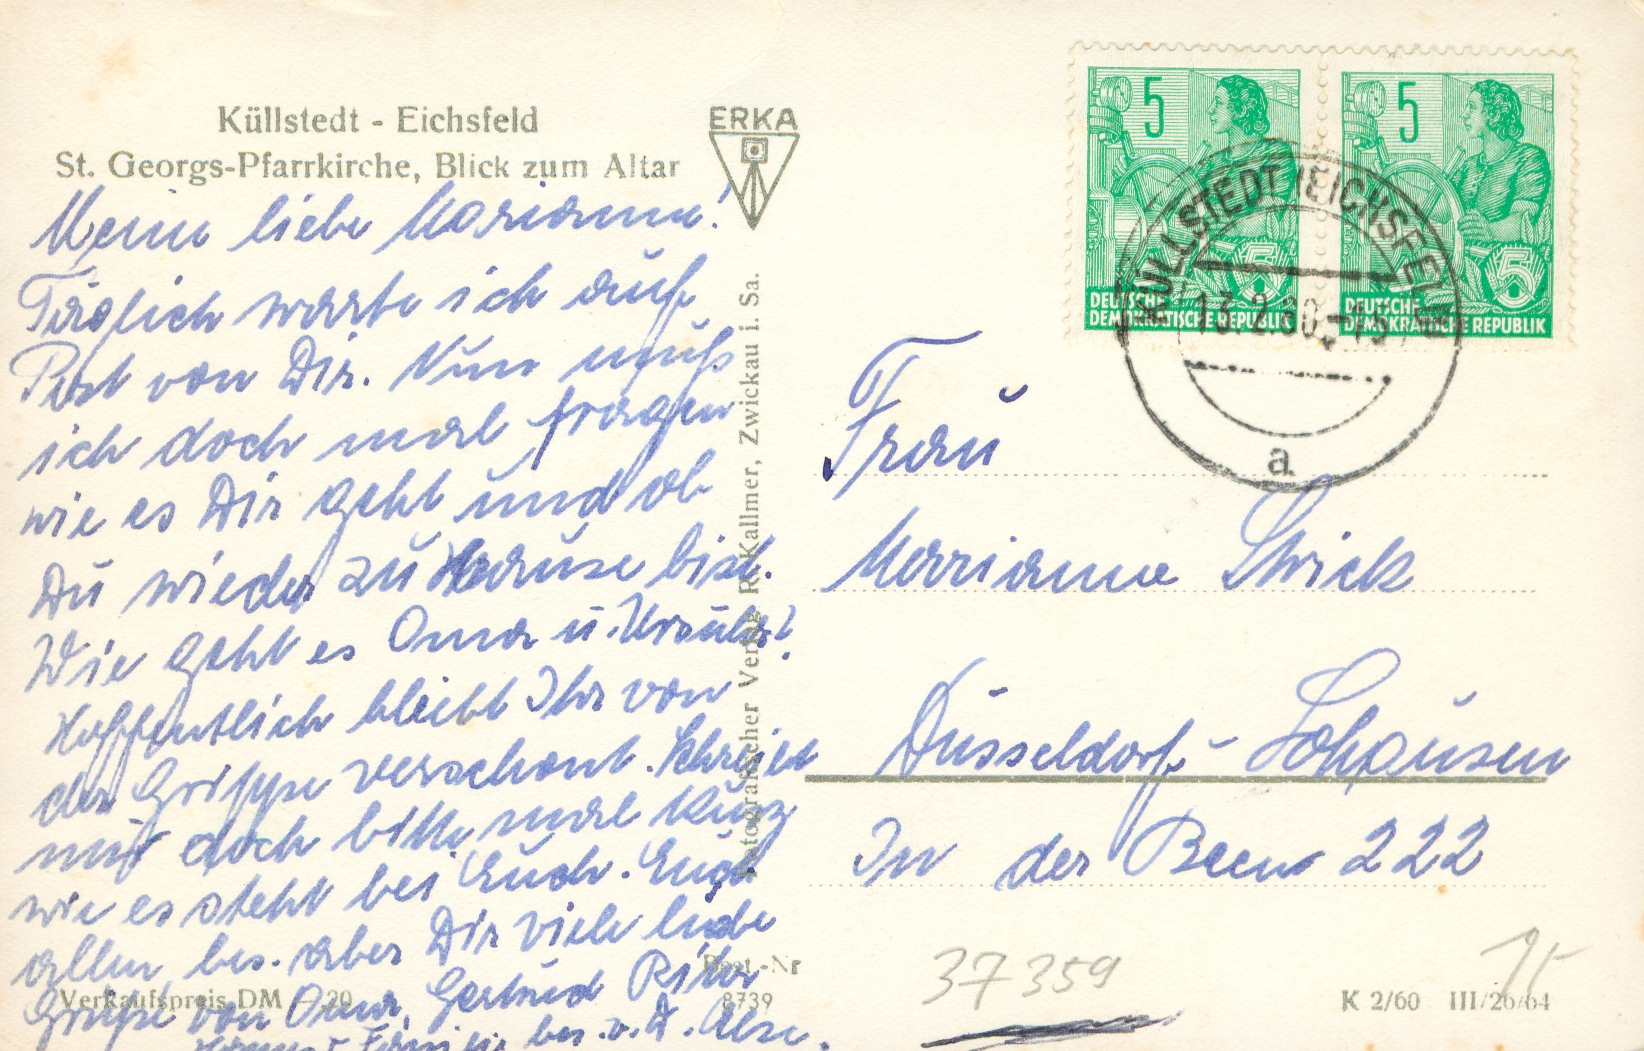 Küllstedt - Eichsfeld
St. Georgs-Pfarrkirche, Blick zum Altar
ERKA
Meine liebe Marianne!
Täglich warte ich auf
Post von Dir. Nun muß
ich doch mal fragen
wie es Dir geht und ob
Du wieder zu Hause bist.
Wie geht es Oma u. Ursula?
Hoffentlich bleibt Ihr von
der Grippe verschont. Schreibe
mir doch bitte mal kurz
wie es steht bei Euch. Euch
allen bes. aber Dir viele liebe
Grüße von Oma, Gertrud
bes. v. D.
Verkaufspreis DM -.20
Best.-Nr
8739
Fotografischer Verlag R. Kallmer, Zwickau i. Sa.
5
DEUTSCHE
DEMOKRATISCHE REPUBLIK
5
5
DEUTSCHE
DEMOKRATISCHE REPUBLIK
5
KÜLLSTEDT (EICHSFELD)
13.2.60.-15
a
Frau
Marianne
Düsseldorf-Lohausen
In der Beeu 222
37359
K 2/60 III/26/64